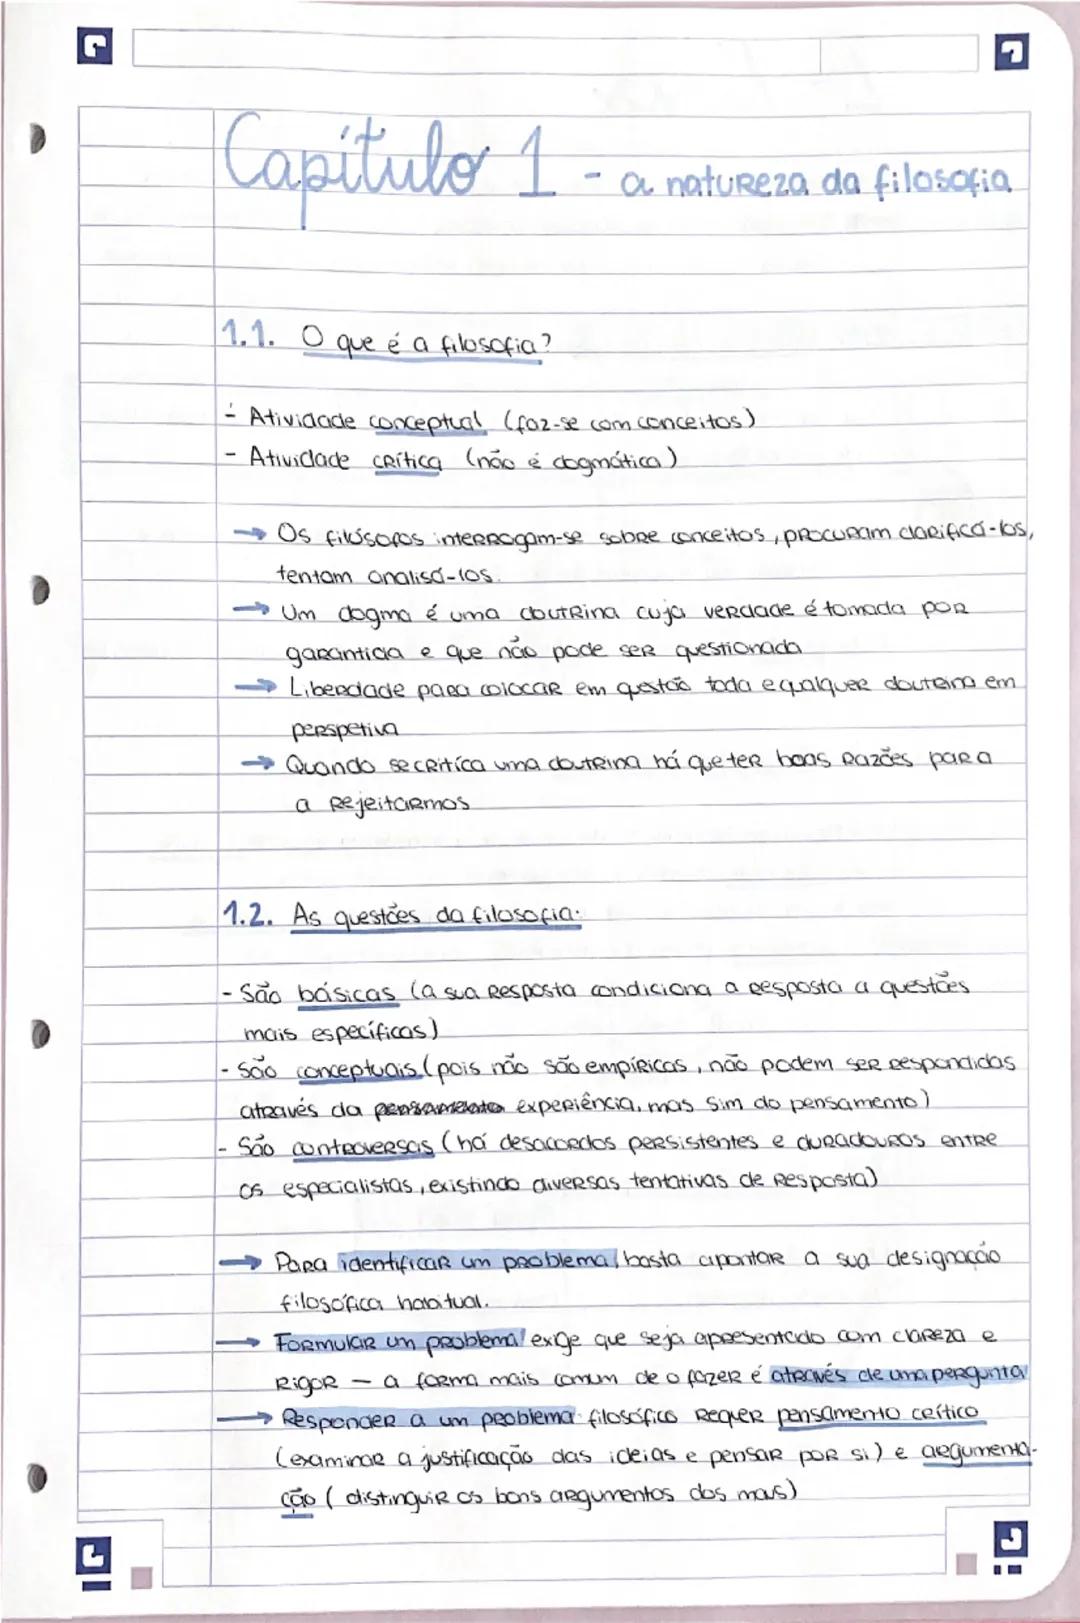 Capítulo 1 - a natureza da filosofia
1.1. O que é a filosofia?
- Atividade conceptual (faz-se com conceitos)
- Atividade crítica (não é dogmática)
→ Os filósofos interrogam-se sobre conceitos, procuram clarificá-los,
tentam analisá-los.
→ Um dogma é uma doutrina cuja verdade é tomada por
garantida e que não pode ser questionada
→ Liberdade para colocar em questão toda e qualquer doutrina em
perspetiva
→ Quando se critica uma doutrina há que ter boas razões para
a rejeitarmos
1.2. As questões da filosofia:
- São básicas (a sua resposta condiciona a resposta a questões
mais específicas)
- São conceptuais (pois não são empíricas, não podem ser respondidas
através da pensamento experiência, mas sim do pensamento)
- São controversas (há desacordos persistentes e duradouros entre
os especialistas, existindo diversas tentativas de resposta)
→ Para identificar um problema, basta apontar a sua designação
filosófica habitual.
→ Formular um problema exige que seja apresentado com clareza e
rigor — a forma mais comum de o fazer é através de uma pergunta
→ Responder a um problema filosófico requer pensamento crítico
(examinar a justificação das ideias e pensar por si) e argumenta-
ção (distinguir os bons argumentos dos maus)